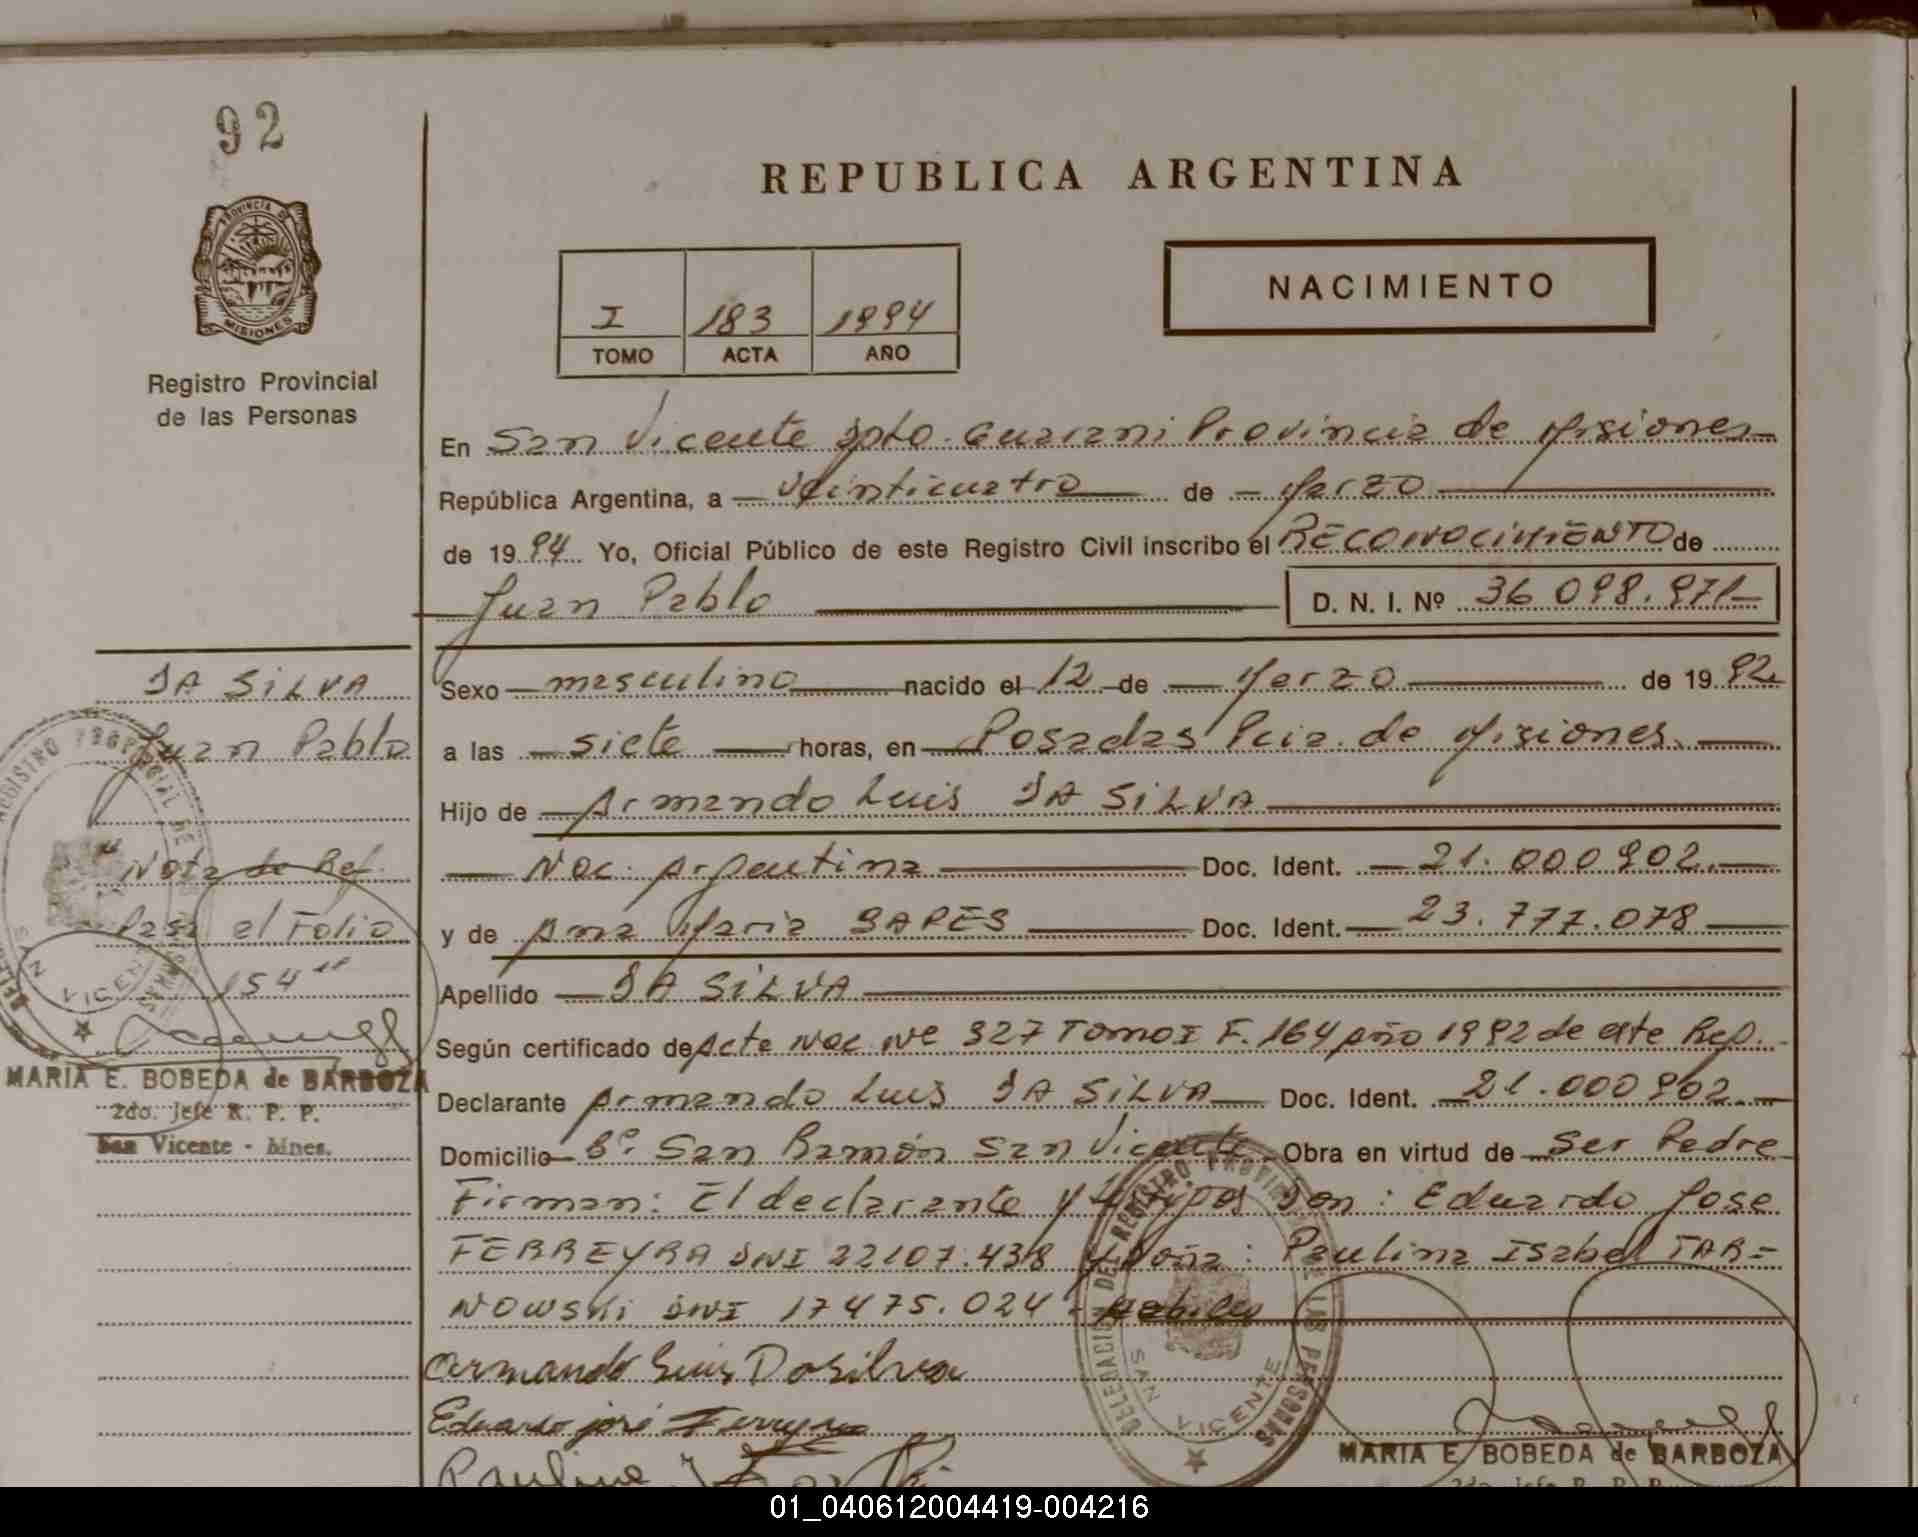 92
REPUBLICA ARGENTINA
PROVINCIA DE
MISIONES
Registro Provincial
de las Personas
I 183 1994
TOMO ACTA AÑO
NACIMIENTO
En San Vicente Dpto. Guarani Provincia de Misiones
República Argentina, a veinticuatro de Marzo
de 1994 Yo, Oficial Público de este Registro Civil inscribo el RECONOCIMIENTO de
Juan Pablo D. N. I. Nº 36 098.971
DA SILVA
Juan Pablo
Nota de Ref.
Pasa al Folio
154
MARIA E. BOBEDA de BARBOZA
2do. Jefe R. P. P.
San Vicente - Mnes.
Sexo masculino nacido el 12 de Marzo de 1992
a las siete horas, en Posadas Pcia. de Misiones.
Hijo de Armando Luis DA SILVA
Nac. Argentina Doc. Ident. 21.000902.
y de Ana Maria Doc. Ident. 23.777.078
Apellido DA SILVA
Según certificado de Acta Nac. Nº 327 Tomo I F. 164 Año 1992 de este Reg.
Declarante Armando Luis DA SILVA Doc. Ident. 21.000902.
Domicilio Bº San Ramón San Vicente Obra en virtud de Ser Padre
Firman: El declarante y testigos Don: Eduardo Jose
FERREYRA DNI 22107.438 y Doña: Paulina Isabel TAR=
NOWSKI DNI 17475.024. Habiles
Armando Luis Da Silva
Eduardo josé Ferreyra
Paulina
DELEGACION DEL REGISTRO PROVINCIAL DE LAS PERSONAS
SAN VICENTE
MARIA E. BOBEDA de BARBOZA
01_040612004419-004216